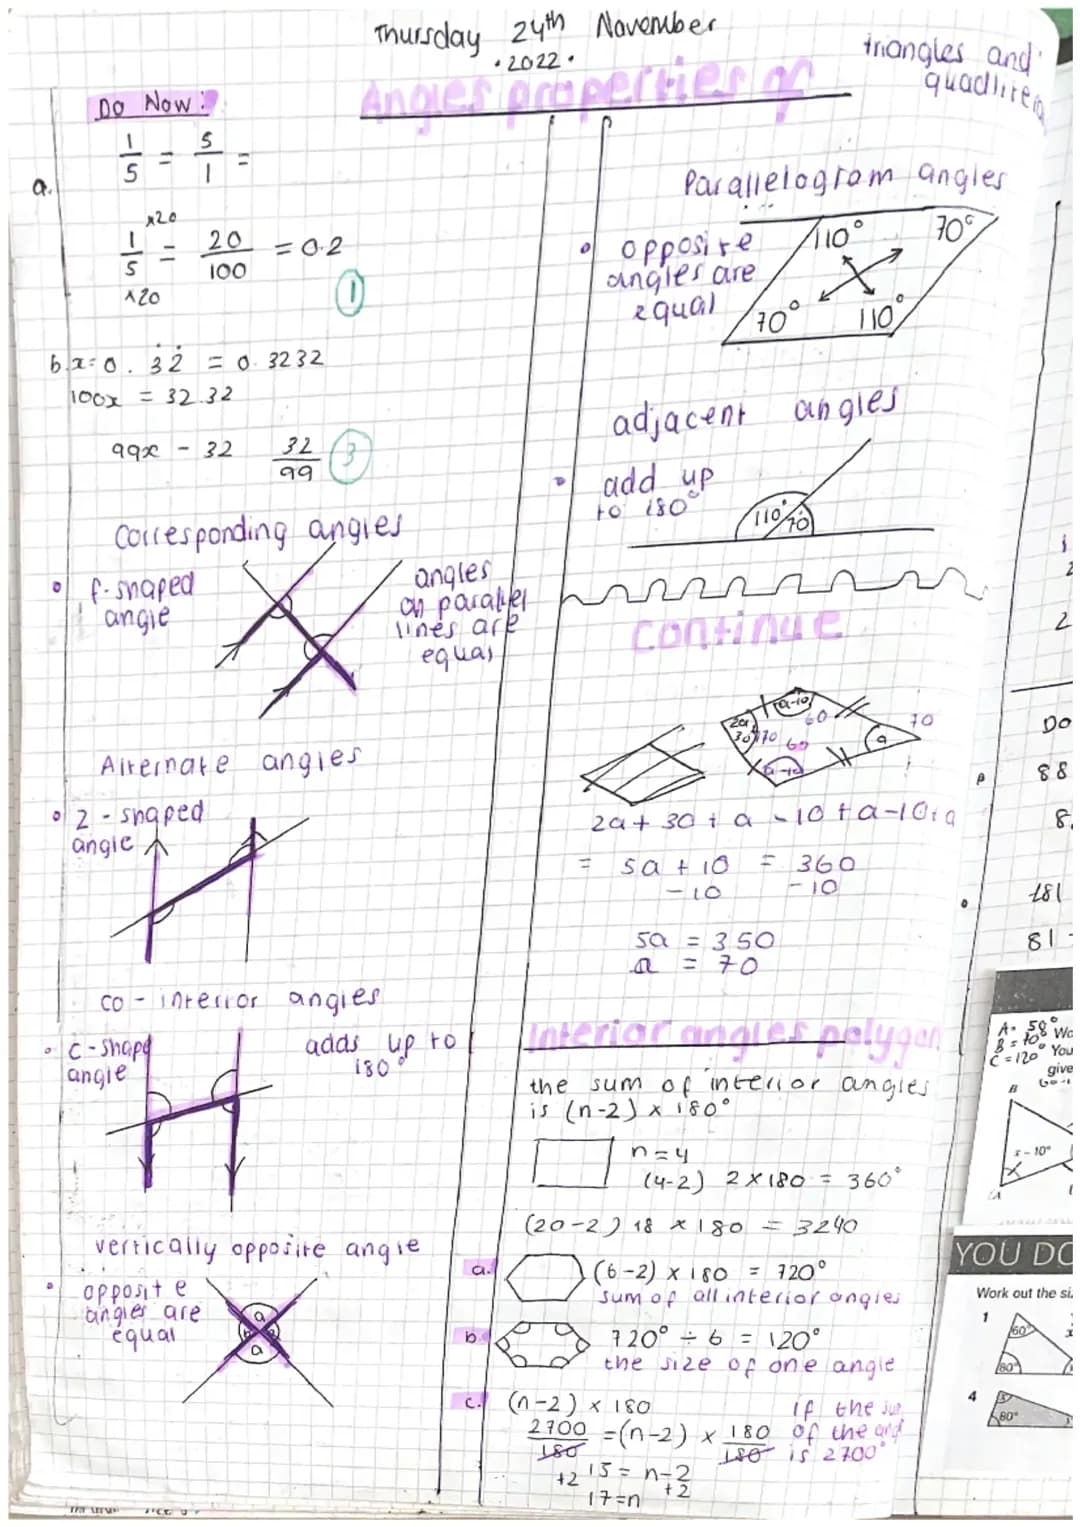 Thursday 24th November
• 2022 •
Angles properties of
triangles and
Do Now:
1/5 = 5/1 =
a.
×20
1/5 = 20/100 = 0.2
×20
1
b. x = 0.3̇2̇ = 0.3232
100x = 32.32
99x - 32 32/99 3
Corresponding angles
• f-shaped
angle
angles
on parallel
lines are
equal
Alternate angles
• Z-shaped
angle
co-interior angles
• C-shape
angle
adds up to
180°
vertically opposite angle
• opposite
angles are
equal
a
b
a
Parallelogram angles
• opposite
angles are
equal
110° 70°
70° 110°
adjacent angles
• add up
to 180°
110° 70
continue
a-10
2a+
30 70 60 70
60 a
a-10
2a + 30 + a - 10 + a - 10 + a
= 5a + 10 = 360
-10 -10
5a = 350
a = 70
Interior angles polygon
the sum of interior angles
is (n-2) × 180°
n = 4
(4-2) 2 × 180 = 360°
(20-2) 18 × 180 = 3240
a. (6-2) × 180 = 720°
sum of all interior angles
b. 720° ÷ 6 = 120°
the size of one angle
c. (n-2) × 180
if the
2700/180 = (n-2) × 180/180 of the
is 2700°
+2 15 = n-2 +2
17 = n
2
Do
88
8.
181
81 -
A = 50°
B = 70°
C = 120°
You
give
B
x - 10°
A
YOU DO
Work out the
1
60°
80°
4
80°